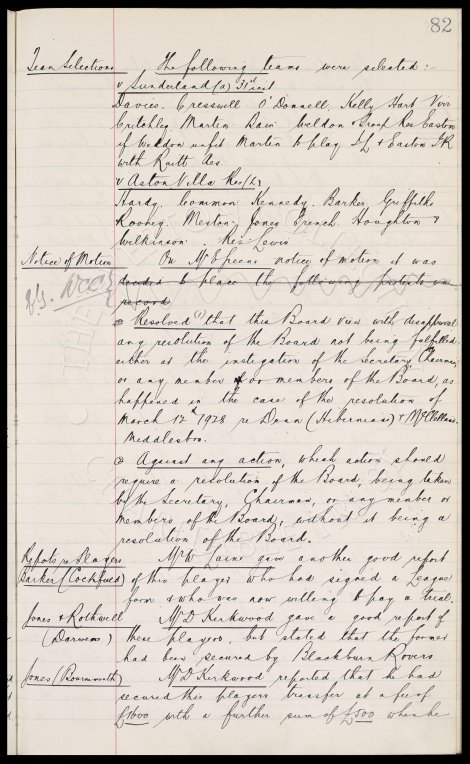 82
Team Selections The following teams were selected :-
v Sunderland (a) 31st inst
Davies. Cresswell O'Donnell. Kelly Hart Virr
Critchley. Martin Dean Weldon & Troup Res Easton
if Weldon unfit Martin to play I.L & Easton I.R
with Raitt Res
v Aston Villa Res (h)
Hardy. Common Kennedy. Barker Griffiths
Rooney. Meston. Jones French. Houghton &
Wilkinson. Res Lewis
Notice of Motion On Mr E Green's notice of motion it was
decided to place the following protests on
record
① Resolved that this Board view with disapproval
any resolution of the Board not being fulfilled
either at the instigation of the Secretary, Chairman
or any member or members of the Board, as
happened in the case of the resolution of
March 12th 1928 re Dunn (Hibernians) & McClelland
Middlesbro.
② Against any action, which action should
require a resolution of the Board, being taken
by the Secretary, Chairman, or any member or
members of the Board, without it being a
resolution of the Board.
Reports re Players Mr W. Sawyer gave another good report
Barker (Cockfield) of this player who had signed a League
form & who was now willing to play a trial.
Jones & Rothwell Mr D Kirkwood gave a good report of
(Darwen) these players, but stated that the former
had been secured by Blackburn Rovers
Jones (Bournemouth) Mr D Kirkwood reported that he had
secured this players transfer at a fee of
£1000 with a further sum of £500 when he